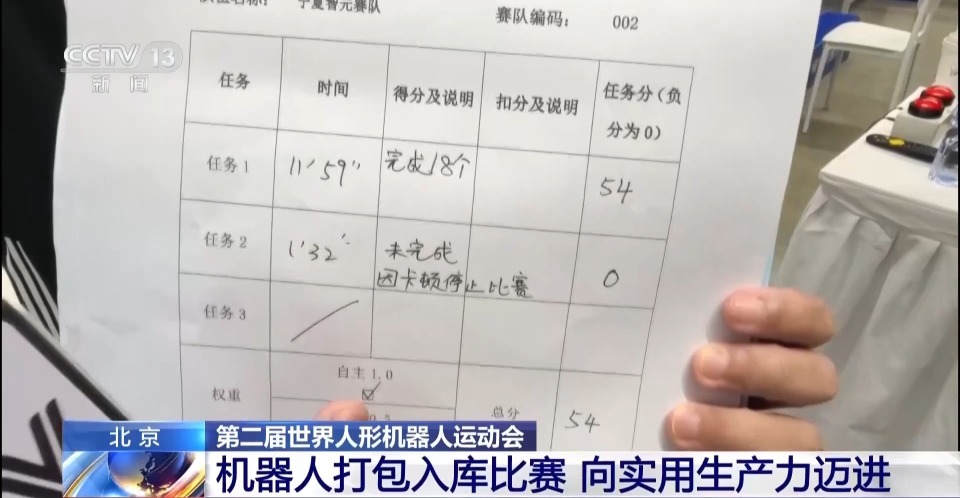 宁夏智元赛队
赛队编码： 002
CCTV 13
新闻
任务 时间 得分及说明 扣分及说明 任务分（负分为0）
任务 1 11′59″ 完成18个 54
任务 2 1′32″ 未完成 因卡顿停止比赛 0
任务 3
权重 自主 1.0 总分 54
北京
第二届世界人形机器人运动会
机器人打包入库比赛 向实用生产力迈进